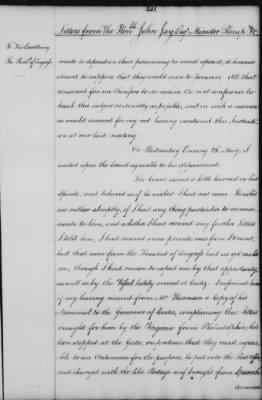 331.
Letters from The Honble John Jay Esqr Minister Plenipo &c
To His Excellency
The Presid. of Congress
made to depend on their persevering to insist upon it, it became
absurd to suppose that they would cease to persevere. All that
remained for me therefore to do was in the next conference to
break this subject as decently as possible, and in such a manner
as would account for my not having mentioned this Instruction
at our last meeting.
On Wednesday Evening 23 May, I
waited upon the Count agreeable to his appointment.
The Count seemed a little hurried in his
spirits, and behaved as if he wished I had not come. He asked
me rather abruptly, if I had any thing particular to communicate
to him, and whether I had received any further letters.
I told him, I had received some private ones from
but that none from the President of Congress had as yet reached
me, though I had reason to expect one by that opportunity
as well as by the lately arrived at Cadiz. I informed him
of my having received from Mr Harrison a copy of his
to the Governor of Cadiz, complaining that letters
brought for him by the Virginia from Philadelphia, had
been stopped at the Gates, on pretence that they must agreeable
to an Ordinance for the purpose, be put into the Post Office
and charged with the like Postage as if brought from Spanish
America